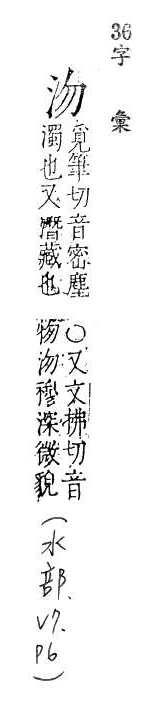 36字彙
沕
覓筆切音密塵
濁也又潛藏也
○又文拂切音
物沕穆深微貌
(水部、V7. P6)